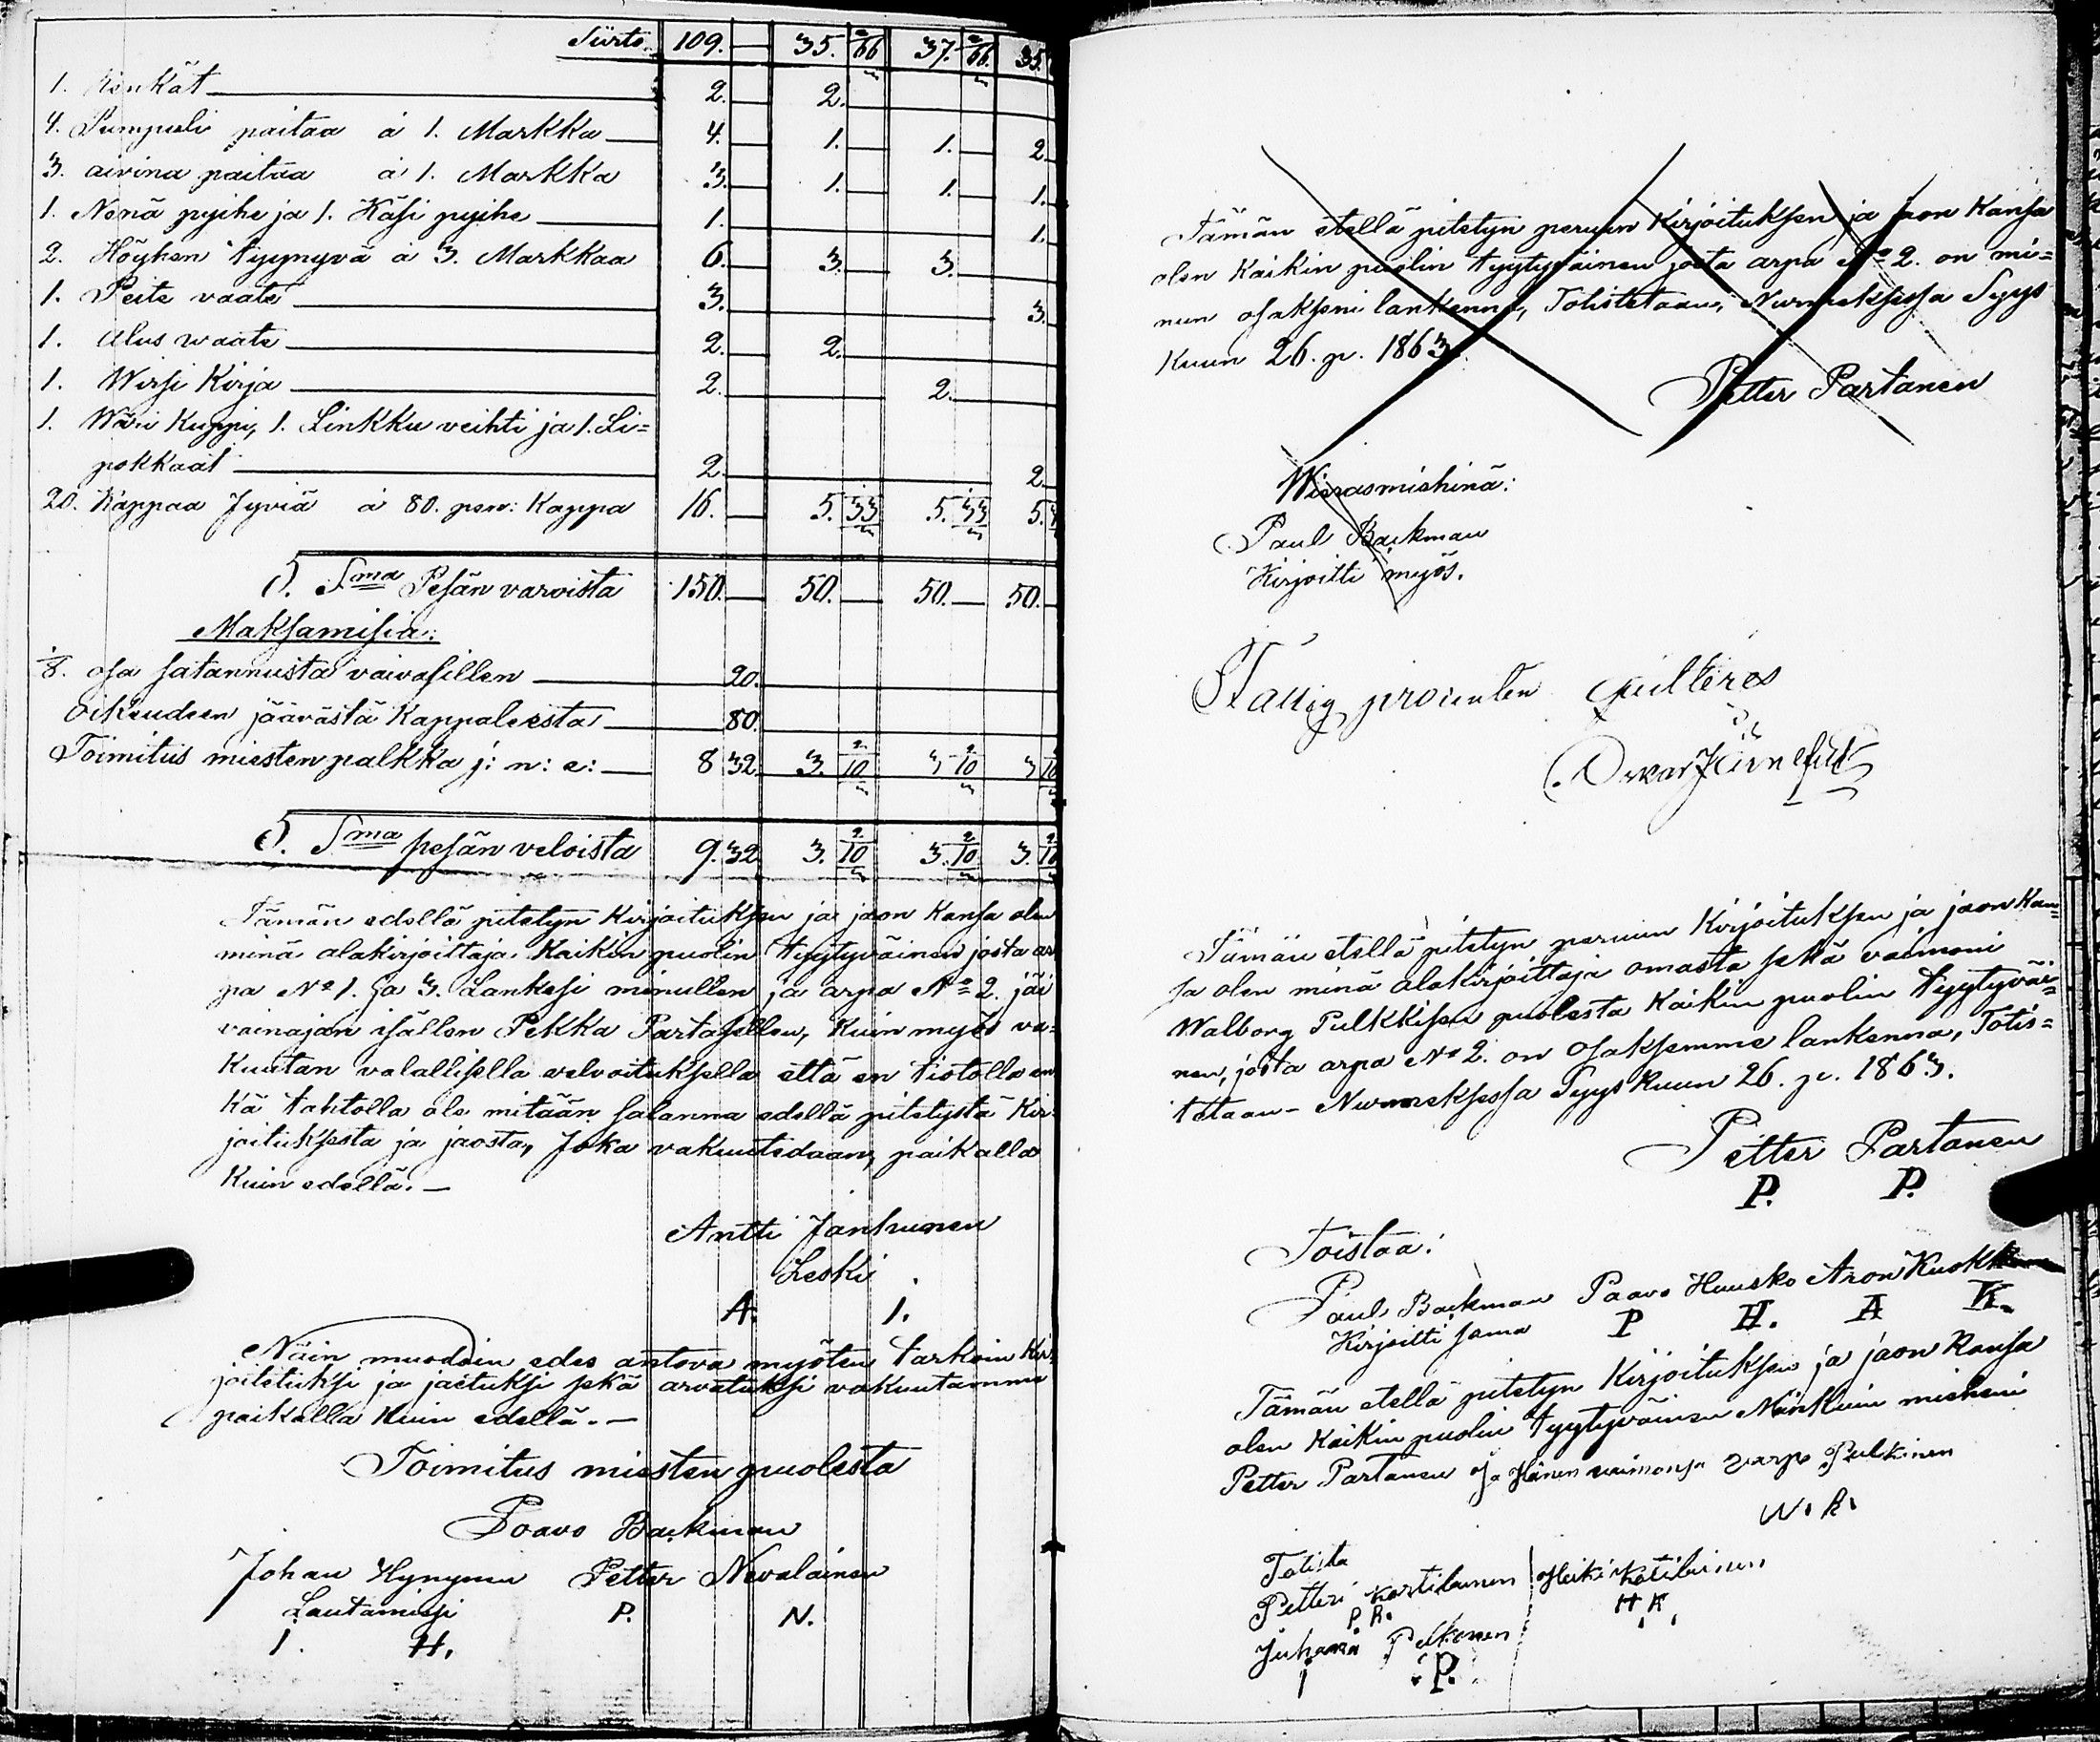 Siirto. 109. — 35. 2/66 37. 2/66. 35.
1. Kenkät — 2. — 2. —
4. Pumpuli paitaa á 1. Markka — 4. — 1. — 1. — 2. —
3. aivina paitaa á 1. Markka 3. — 1. — 1. — 1.
1. Nenä pyihe ja 1. Käsi pyihe — 1. — 1.
2. Höyhen tyynyvä á 3. Markkaa 6. — 3. — 3. —
1. Peite vaate — 3. — 3.
1. Alus waate — 2. — 2. —
1. Wirsi Kirja — 2. — 2. —
1. Wäri Kuppi, 1. Linkku veihti ja 1. Li=
pokkaat — 2. — 2.
20. Kappaa Jyviä á 80. pen: Kappa 16. — 5. 33 5. 33 5.
S. Sma Pesän varoista 150. — 50. — 50. — 50. —
Maksamisia:
1/8. osa satannusta vaivasillen — 20.
Oikeudeen jäävästä Kappaleesta — 80.
Toimitus miesten palkka j: n: e: — 8 32 3. 2/10 3 2/10 3
S. Sma pesän veloista 9. 32 3. 2/10 3. 2/10 3. 2/10
Tämän edellä pitetyn Kirjoituksen ja jaon Kansa olen
minä alakirjoittaja. Kaikin puolin tyytyväinen josta ar
pa No 1. ja 3. Lankesi minullen ja arpa No 2. jäi
vainajan isällen Pekka Partasellen, Kuin myös va=
Kuutan valallisella velvoituksella että en tiotolla en
Kä tahtolla ole mitään salanna edellä pitetystä Kir
joituksesta ja jaosta, Joka vakuutedaan, paikalla
Kuin edellä. —
Antti Jankunen
Leski
A. 1.
Näin muodoin edes antova myöten tarkoin Kir=
joitetuksi ja jaetuksi sekä arvatuksi vakuutamme
paikalla Kuin edellä. —
Toimitus miesten puolesta
Paavo Backman
Johan Hynynen Petter Nevalainen
Lautamies P. N.
I. H.
Tämän etellä pitetyn peruun Kirjoituksen ja jaon Kansa
olen Kaikin puolin tyytyväinen josta arpa No 2. on mi=
nun osakseni lankenna, Totistetaan, Nurmeksessa Syys
Kuun 26. p. 1863.
Petter Partanen
Wierasmiehinä:
Paul Backman
Kirjoitti myös.
Fattig procenten quitteres
Oskar Järnefelt
Tämän etellä pitetyn peruun Kirjoituksen ja jaon Kan=
sa olen minä alakirjoittaja omasta sekä vaimoni
Walborg Pulkkisen puolesta Kaikin puolin tyytyväi=
nen, josta arpa No 2. on Osaksemme lankenna, Totis=
tetaan — Nurmeksessa Syys Kuun 26. p. 1863.
Petter Partanen
P. P.
Toistaa:
Paul Backman Paavo Huusko Aron Kuokkanen
Kirjoitti sama P H. A K.
Tämän etellä pitetyn Kirjoituksen ja jaon Kansa
olen Kaikin puolin tyytyväinen Niinkuin mieheni
Petter Partanen Ja Hänen vaimonsa Varpo Pulkinen
W. P.
Totista
Petteri Kortilainen Heiki Kotilainen
P. K. H K
Juhana Pulkonen
I P.